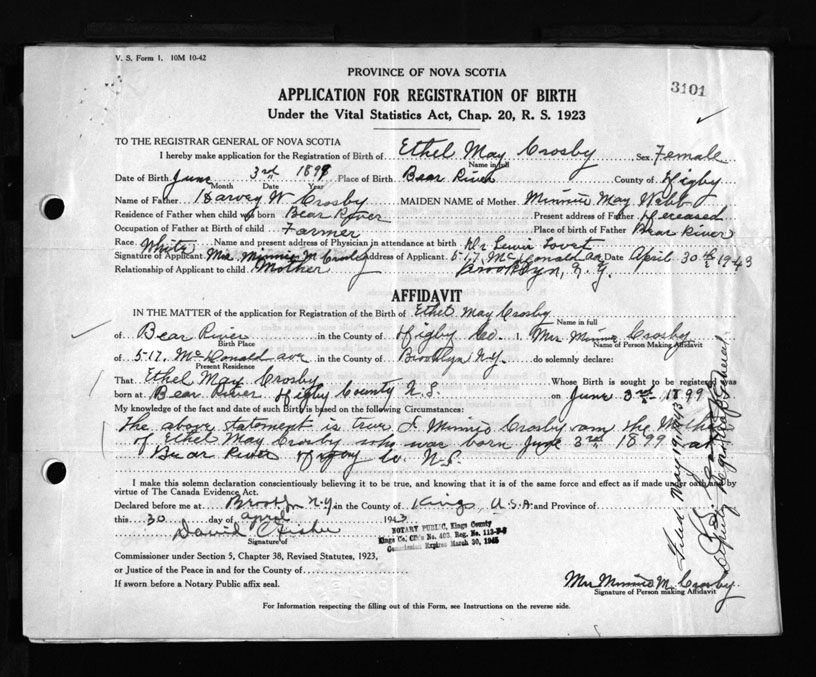 V. S. Form 1. 10M 10-42
PROVINCE OF NOVA SCOTIA
3101
APPLICATION FOR REGISTRATION OF BIRTH
Under the Vital Statistics Act, Chap. 20, R. S. 1923
TO THE REGISTRAR GENERAL OF NOVA SCOTIA
I hereby make application for the Registration of Birth of Ethel May Crosby Sex Female
Name in full
Date of Birth June 3rd 1899 Place of Birth Bear River County of Digby
Month Date Year
Name of Father Harvey W Crosby MAIDEN NAME of Mother Minnie May Webb
Residence of Father when child was born Bear River Present address of Father Deceased
Occupation of Father at Birth of child Farmer Place of birth of Father Bear River
Race White Name and present address of Physician in attendance at birth Dr Lewis Lovett
Signature of Applicant Mrs Minnie M Crosby Address of Applicant 517 McDonald ave Date April 30th 1943
Relationship of Applicant to child Mother Brooklyn, N.Y.
AFFIDAVIT
IN THE MATTER of the application for Registration of the Birth of Ethel May Crosby
Name in full
of Bear River in the County of Digby Co. I, Mrs Minnie Crosby
Birth Place Name of Person Making Affidavit
of 517 McDonald ave in the County of Brooklyn N.Y. do solemnly declare:
Present Residence
That Ethel May Crosby Whose Birth is sought to be registered was
born at Bear River Digby County N.S. on June 3rd 1899
My knowledge of the fact and date of such Birth is based on the following Circumstances:
The above statement is true I Minnie Crosby am the Mother
of Ethel May Crosby who was born June 3rd 1899 at
Bear River Digby Co. N.S.
I make this solemn declaration conscientiously believing it to be true, and knowing that it is of the same force and effect as if made under oath and by
virtue of The Canada Evidence Act.
Declared before me at Brooklyn N.Y. in the County of Kings, U.S.A and Province of
this 30 day of April 1943
David C Fisher
Signature of
NOTARY PUBLIC, Kings County
Kings Co. Clk's No. 403, Reg. No. 111-
Commission Expires March 30, 1945
Commissioner under Section 5, Chapter 38, Revised Statutes, 1923,
or Justice of the Peace in and for the County of
If sworn before a Notary Public affix seal.
Mrs Minnie M. Crosby.
Signature of Person making Affidavit
For Information respecting the filling out of this Form, see Instructions on the reverse side.
Filed May 19 1943
Deputy Registrar General